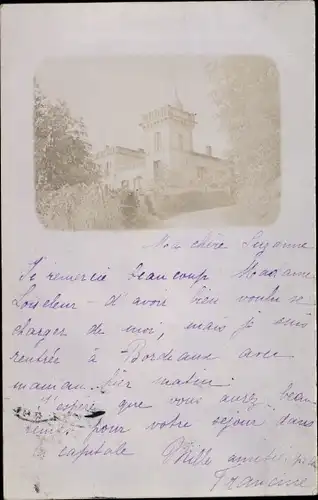 Ma chère Suzanne
Je remercie beaucoup Madame
d'avoir bien voulu se
charger de moi, mais je suis
rentrée à Bordeaux avec
maman hier matin.
J'espère que vous aurez beau
temps pour votre séjour dans
la capitale
Mille amitiés
Francine